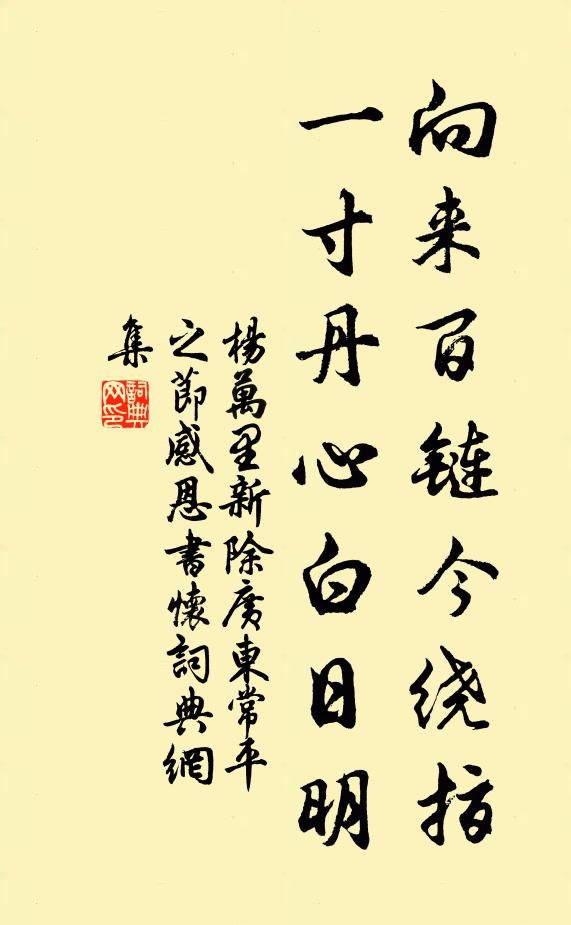 向来百鏈今绕指
一寸丹心白日明
楊萬里新除廣東常平
之節感恩書懷詞典網
集
詞典网印